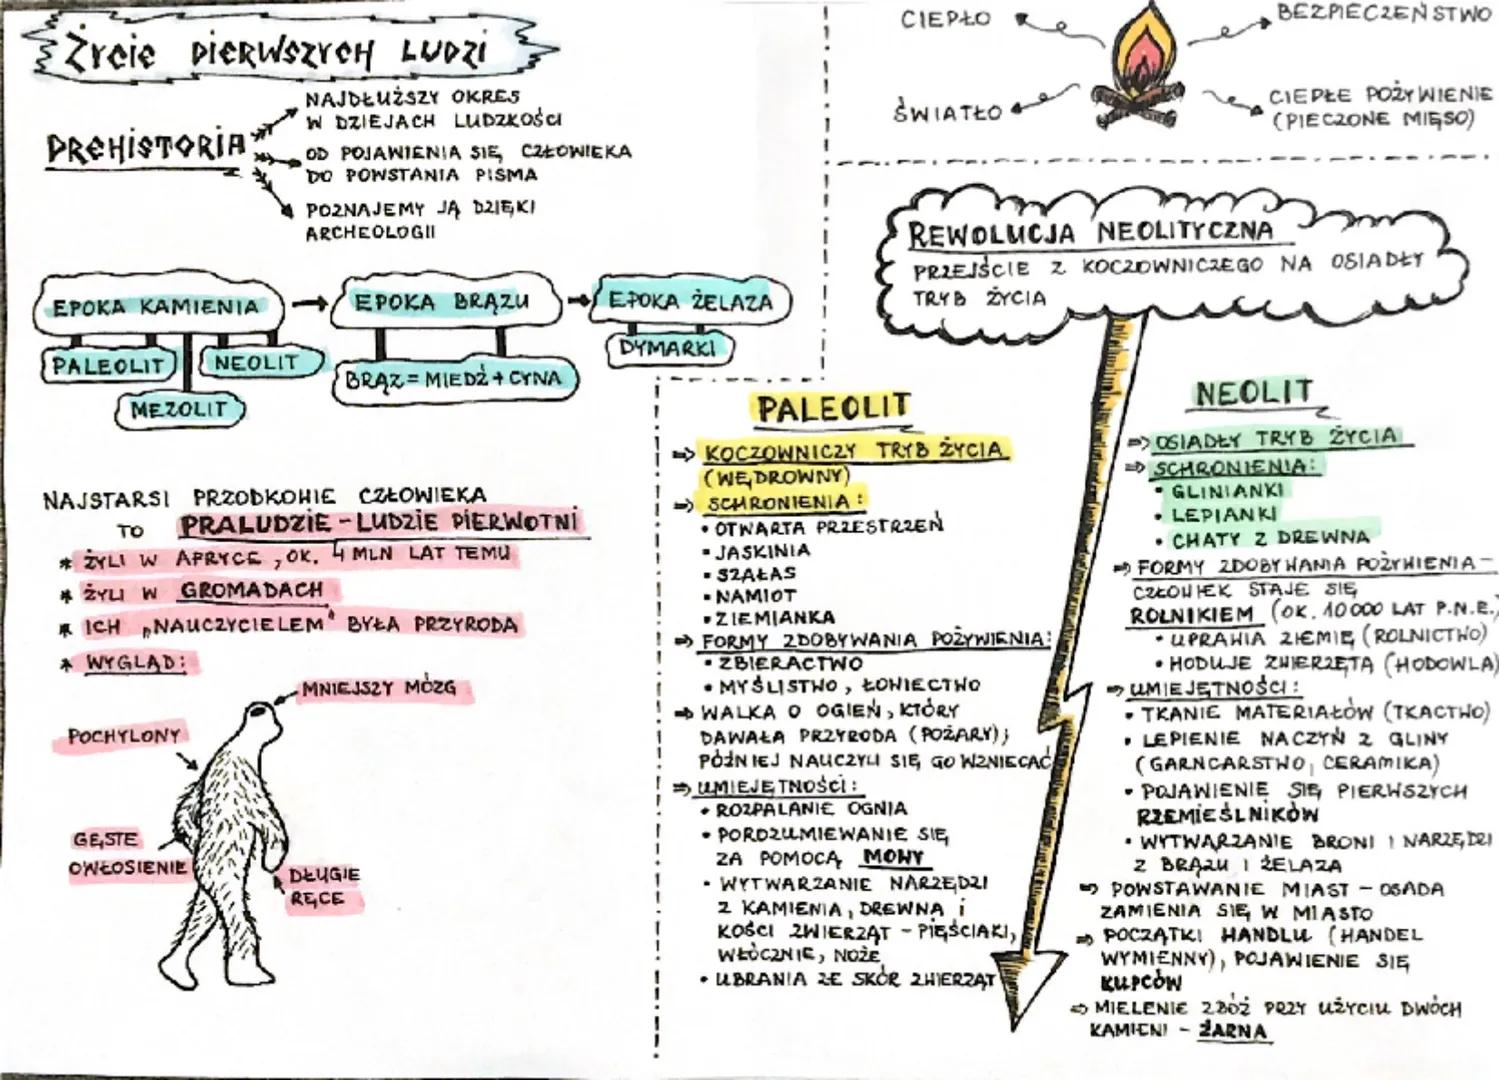 Życie pierwszych ludzi
PREHISTORIA
NAJDŁUŻSZY OKRES
W DZIEJACH LUDZKOŚCI
OD POJAWIENIA SIĘ CZŁOWIEKA
DO POWSTANIA PISMA
POZNAJEMY JĄ DZIĘKI
ARCHEOLOGII
EPOKA KAMIENIA
EPOKA BRĄZU
EPOKA ŻELAZA
PALEOLIT
NEOLIT
MEZOLIT
BRĄZ = MIEDŹ + CYNA
DYMARKI
NAJSTARSI PRZODKOWIE CZŁOWIEKA
TO PRALUDZIE - LUDZIE PIERWOTNI
* ŻYLI W AFRYCE, OK. 4 MLN LAT TEMU
* ŻYLI W GROMADACH
* ICH „NAUCZYCIELEM" BYŁA PRZYRODA
* WYGLĄD:
MNIEJSZY MÓZG
POCHYLONY
GĘSTE
OWŁOSIENIE
DŁUGIE
RĘCE
CIEPŁO
BEZPIECZEŃSTWO
ŚWIATŁO
CIEPŁE POŻYWIENIE
(PIECZONE MIĘSO)
REWOLUCJA NEOLITYCZNA
PRZEJŚCIE Z KOCZOWNICZEGO NA OSIADŁY
TRYB ŻYCIA
PALEOLIT
⇒ KOCZOWNICZY TRYB ŻYCIA
(WĘDROWNY)
⇒ SCHRONIENIA:
• OTWARTA PRZESTRZEŃ
• JASKINIA
• SZAŁAS
• NAMIOT
• ZIEMIANKA
⇒ FORMY ZDOBYWANIA POŻYWIENIA:
• ZBIERACTWO
• MYŚLISTWO, ŁOWIECTWO
⇒ WALKA O OGIEŃ, KTÓRY
DAWAŁA PRZYRODA (POŻARY);
PÓŹNIEJ NAUCZYLI SIĘ GO WZNIECAĆ
⇒ UMIEJĘTNOŚCI:
• ROZPALANIE OGNIA
• POROZUMIEWANIE SIĘ
ZA POMOCĄ MOWY
• WYTWARZANIE NARZĘDZI
Z KAMIENIA, DREWNA i
KOŚCI ZWIERZĄT - PIĘŚCIAKI,
WŁÓCZNIE, NOŻE
• UBRANIA ZE SKÓR ZWIERZĄT
NEOLIT
⇒ OSIADŁY TRYB ŻYCIA
⇒ SCHRONIENIA:
• GLINIANKI
• LEPIANKI
• CHATY Z DREWNA
⇒ FORMY ZDOBYWANIA POŻYWIENIA -
CZŁOWIEK STAJE SIĘ
ROLNIKIEM (OK. 10 000 LAT P.N.E.)
• UPRAWIA ZIEMIĘ (ROLNICTWO)
• HODUJE ZWIERZĘTA (HODOWLA)
⇒ UMIEJĘTNOŚCI:
• TKANIE MATERIAŁÓW (TKACTWO)
• LEPIENIE NACZYŃ Z GLINY
(GARNCARSTWO, CERAMIKA)
• POJAWIENIE SIĘ PIERWSZYCH
RZEMIEŚLNIKÓW
• WYTWARZANIE BRONI I NARZĘDZI
Z BRĄZU I ŻELAZA
⇒ POWSTAWANIE MIAST - OSADA
ZAMIENIA SIĘ W MIASTO
⇒ POCZĄTKI HANDLU (HANDEL
WYMIENNY), POJAWIENIE SIĘ
KUPCÓW
⇒ MIELENIE ZBÓŻ PRZY UŻYCIU DWÓCH
KAMIENI - ŻARNA